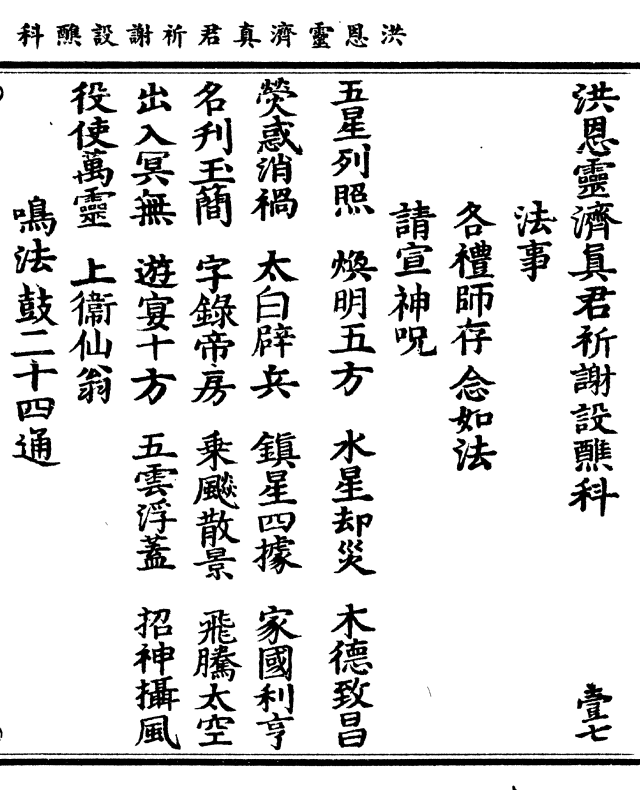 洪恩靈濟真君祈謝設醮科
洪恩靈濟真君祈謝設醮科 壹七
法事
各禮師存念如法
請宣神呪
五星列照 煥明五方 水星却災 木德致昌
熒惑消禍 太白辟兵 鎮星四據 家國利亨
名刋玉簡 字錄帝房 乗飈散景 飛騰太空
出入冥無 遊宴十方 五雲浮蓋 招神攝風
役使萬靈 上衛仙翁
鳴法鼓二十四通